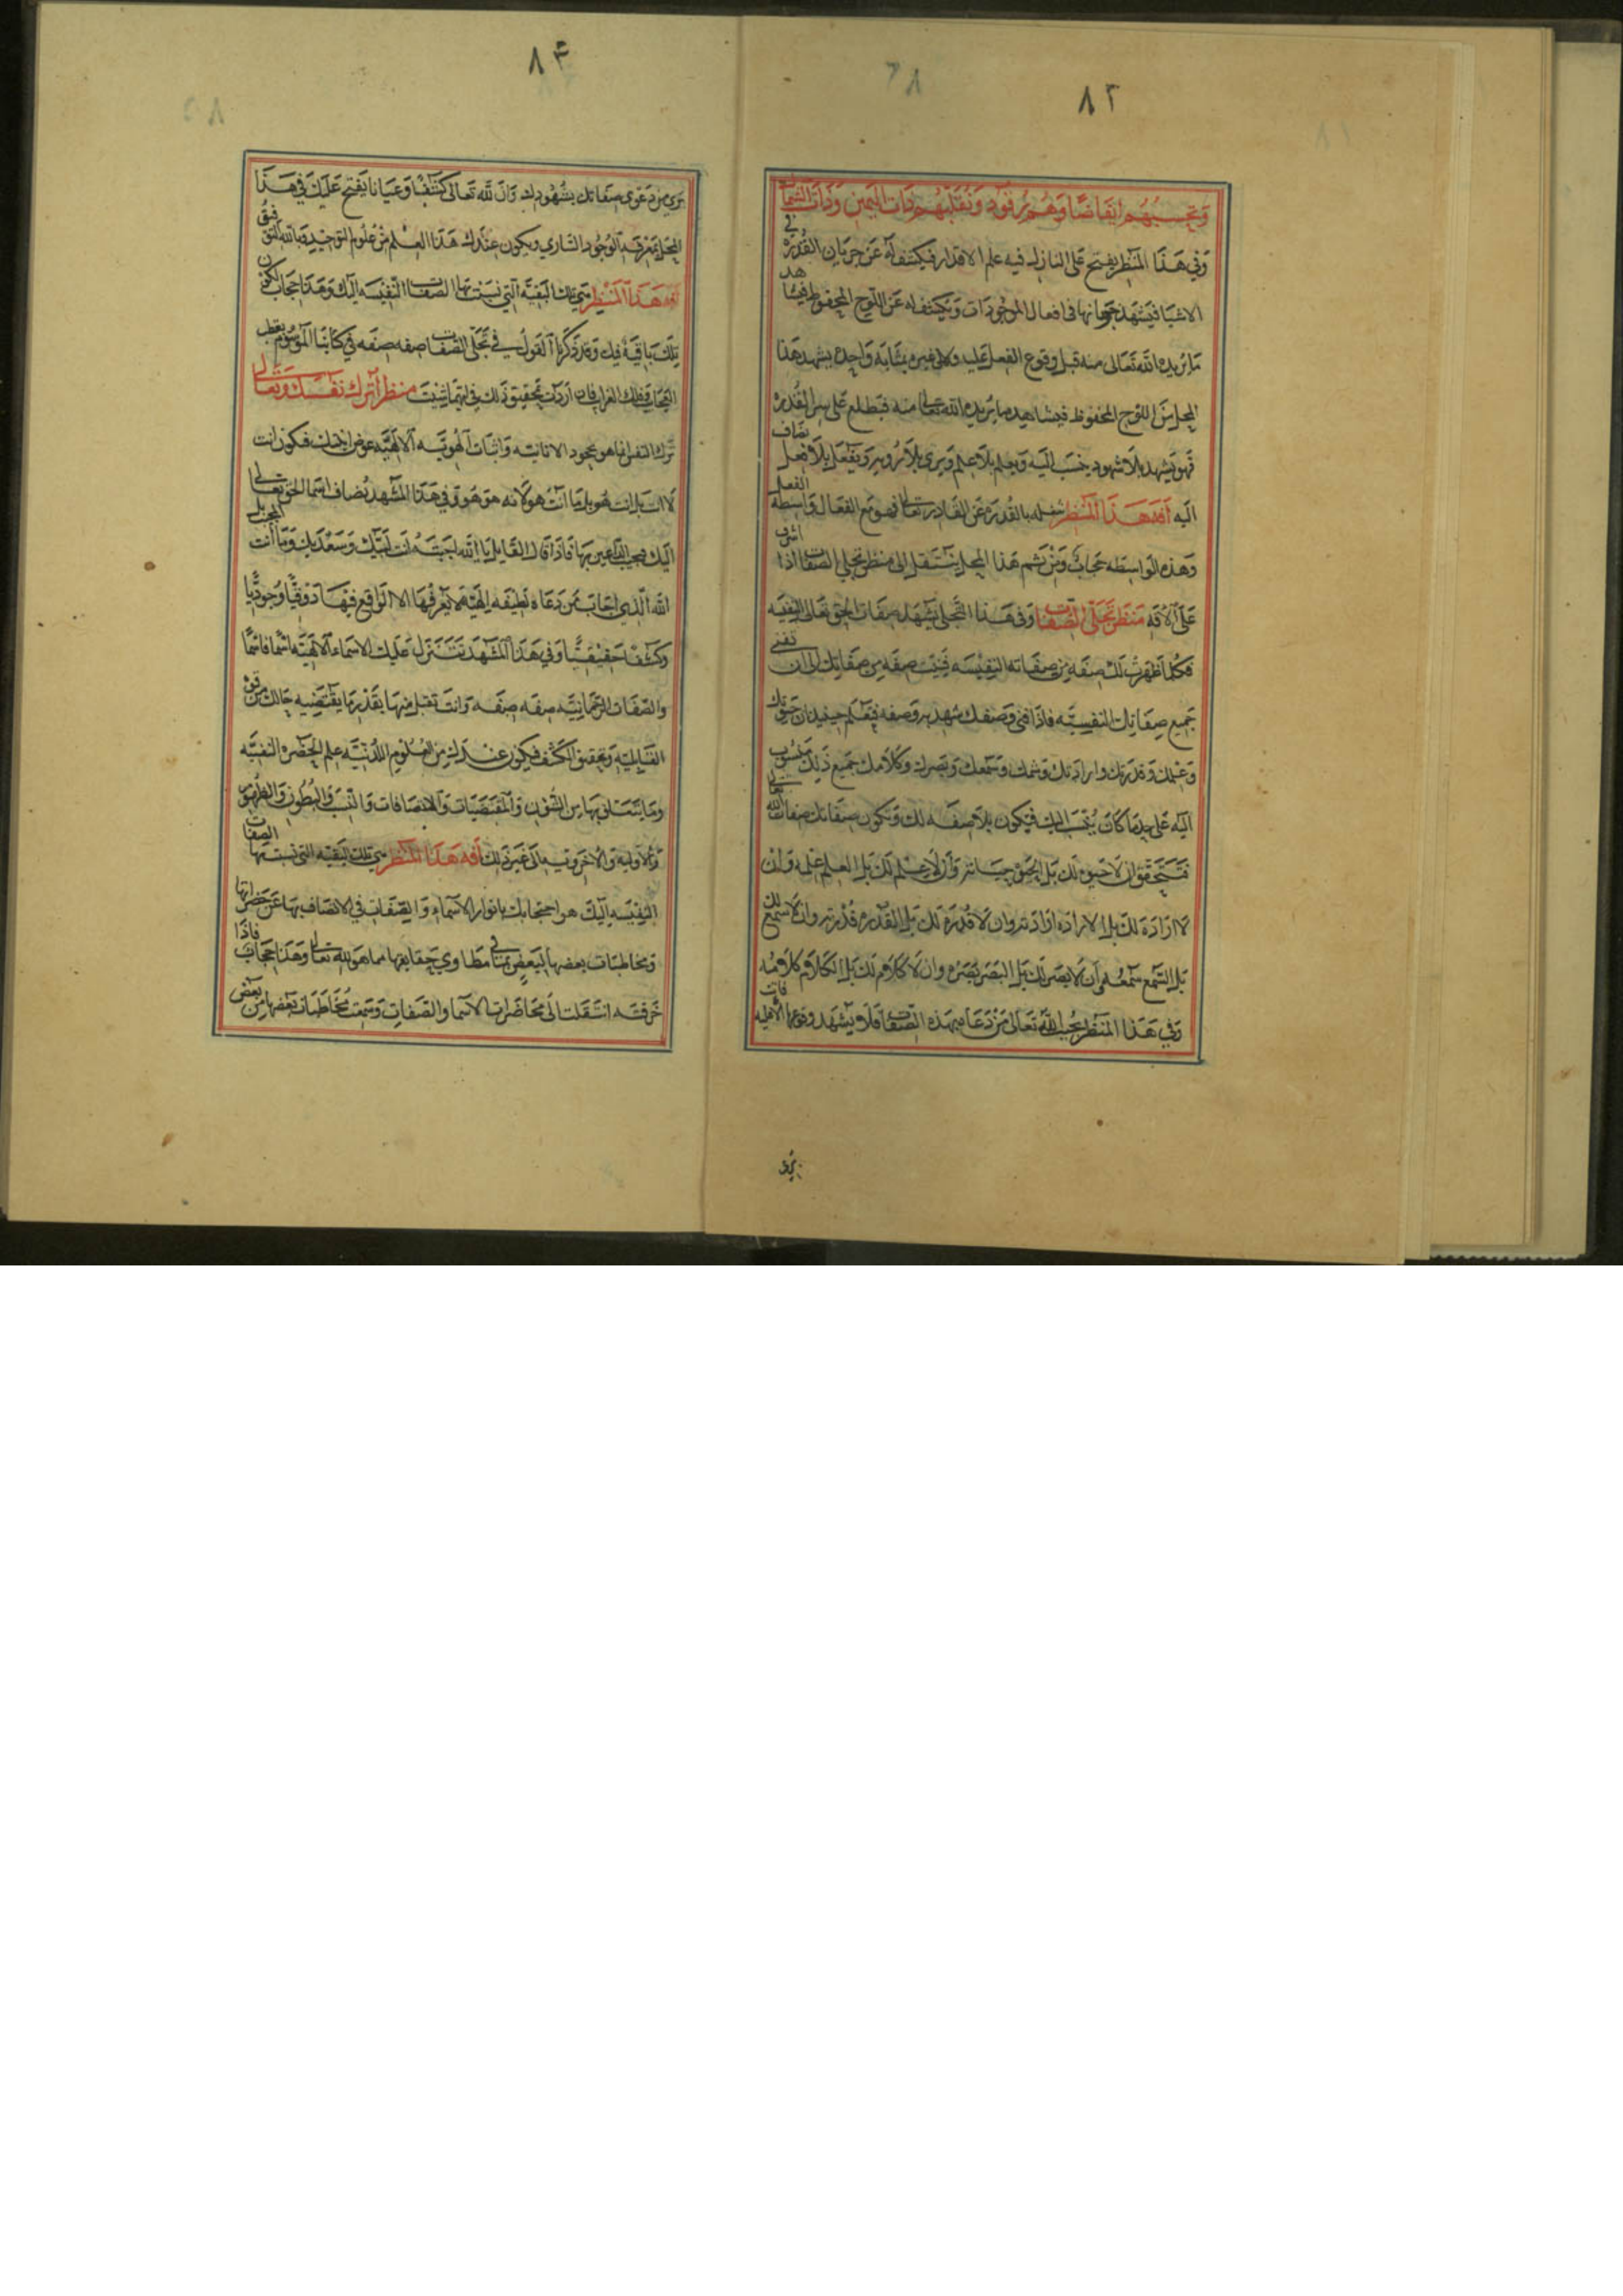 ٨٢
وتحسبهم ايقاضا وهم رقود ونقلبهم ذات اليمين وذات الشمال
وفي هذا المنظر يفتح على النازل فيه علم الاقتدار فيكشف له عن جريان القدرة في
الاشيا فيشهد جريانها في افعال الموجودات ويكشف له عن اللوح المحفوظ فيشاهد
ما يريده الله تعالى منه قبل وقوع الفعل عليه وعلى غيره بمثابة واحدة يشهد هذا
المحل من اللوح المحفوظ فيشاهد ما يريده الله تعالى منه فيطلع على سر القدره
فهو يشهد بلا شهود ينسب اليه ويعلم بلا علم ويرى بلا روية ويفعل بلا فعل يضاف
اليه افة هذا المنظر شغله بالقدرة عن القادر تعالى فهو مع الفعال واسطة الفعل
وهذه الواسطه حجاب ومن ثم هذا المحل ينتقل الى منظر تجلي الصفات اذا اشرف
على الافة منظر تجلي الصفات وفي هذا التجلي يشهد صفات الحق تعالى النفسية
فكلما ظهرت لك صفة من صفاته النفيسه فنيت صفة من صفاتك الى ان تفنى
جميع صفاتك النفسية فاذا فني وصفك شهد بوصفه فتعلم حينيذ ان حيوتك
وعلمك وقدرتك وارادتك وشمك وسمعك وبصرك وكلامك جميع ذلك منسوب
اليه على حد ما كان ينسب اليك فيكون بلا صفة لك وتكون صفاتك صفات الله تعالى
فتتحقق ان لا حيوة لك بل الحيوة حياته وان لا علم لك بل العلم علمه وان
لا ارادة لك بل الارادة ارادته وان لا قدرة لك بل القدرة قدرته وان لا سمع لك
بل السمع سمعه وان لا بصر لك بل البصر بصره وان لا كلام لك بل الكلام كلامه
وفي هذا المنظر يجيب الله تعالى من دعا بهذه الصفات فلا يشهد وقوعها
٨٣
برى من دعوى صفاتك بشهودك وان لله تعالى كشفا وعيانا يفتح عليك في هذا
المحل بمعرفة الوجود الساري ويكون عندك هذا العلم من علوم التوحيد وبالله التوفيق
افة هذا المنظر هي تلك البقية التي نسبت بها الصفات النفيسه اليك وهذا حجاب لكون
تلك باقية فيك وقد ذكرنا القول في تجلي الصفات صفه صفه في كتابنا الموسوم بقطب
العجايب وفلك الغرايب فان اردت تحقيق ذلك فايتها شيت منظر اترك نفسك وتعال
ترك النفس انما هو بجحود الانانية واثبات الهوية الالهية عوض انيتك فتكون انت
لا انت بل انت هو بل ما انت هو لانه هو هو وفي هذا المشهد يضاف اسما الحق تعالى
اليك فتجيب الداعين بها فاذا قال القايل يا الله لجبته انت لبيك وسعديك وما انت المجيب بل
الله الذي اجاب عمن دعاه لطيفة الهية لا يعرفها الا الواقع فيها ذوقيا وجوديا
وكشفا حقيقيا وفي هذا المشهد تتنزل عليك الاسماء الالهية اسما فاسما
والصفات الرحمانية صفه صفه وانت تقبل منها بقدر ما يقتضيه حالك من قوة
القابلية وتحقيق الكشف فيكون عندك من العلوم اللدنية علم الحضره النفسيه
وما يتعلق بها من الشؤن والمقتضيات والاتصافات والنسب والبطون والظهور
والاولية والاخرويه الى غير ذلك افة هذا المنظر هي تلك البقيه التي نسبت بها الصفات
النفيسه اليك هو احتجابك بانوار الاسماء والصفات في الاتصاف بها عن حضراتها
ومخاطبات بعضها لبعض بما في مطاوي حقايقها مما هو لله تعالى وهذا حجاب فاذا
خرقته انتقلت الى محاضرات الاسما والصفات وسمعت مخاطبات بعضها من بعض